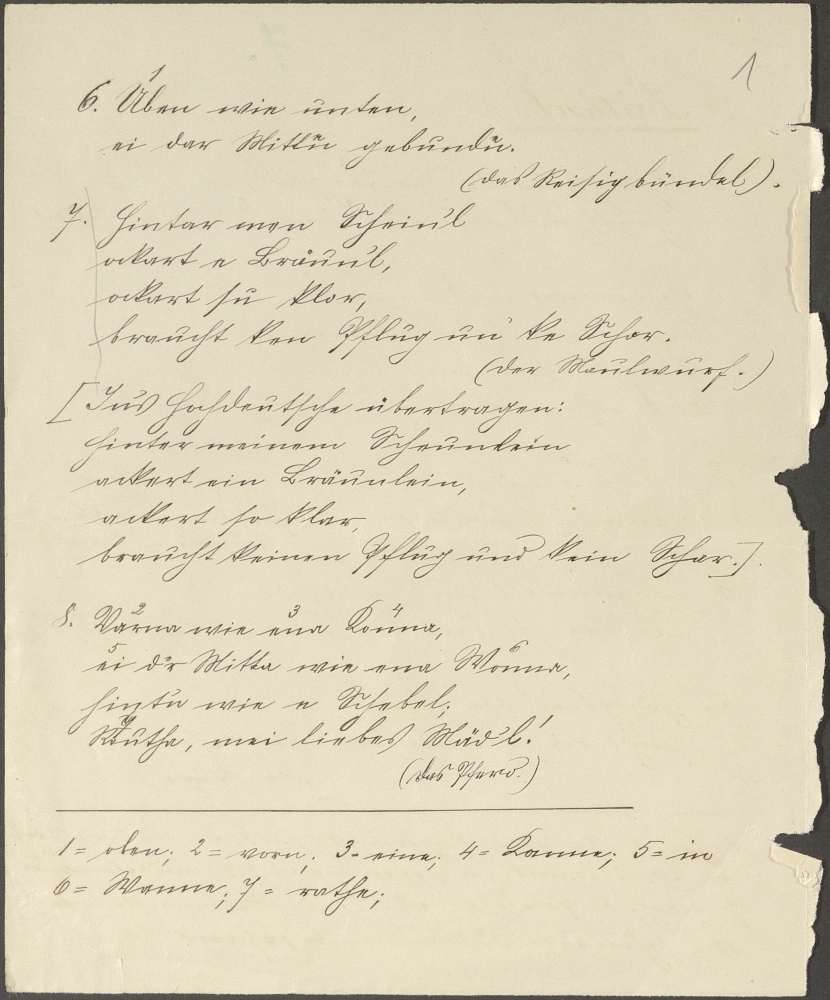 1
6. Uben¹ wie unten,
ei dar Mittń gebundń.
(das Reisigbündel).
7. Hintar men Schein'l
ackart e Bräun'l,
ackart su klor,
braucht ken Pflug un' ke Schor.
(der Maulwurf.)
[Ins Hochdeutsche übertragen:
Hinter meinem Scheunlein
ackert ein Bräunlein,
ackert so klar,
braucht keinen Pflug und kein Schar.].
8. Varna² wie ena³ Konna⁴,
ei⁵ d'r Mitta wie ena Wonna⁶,
hintń wie e Schebel;
Rotha⁷, mei liebes Mäd'l!
(das Pferd.)
1 = oben; 2 = vorn; 3 = eine; 4 = Kanne; 5 = in
6 = Wanne; 7 = rathe;